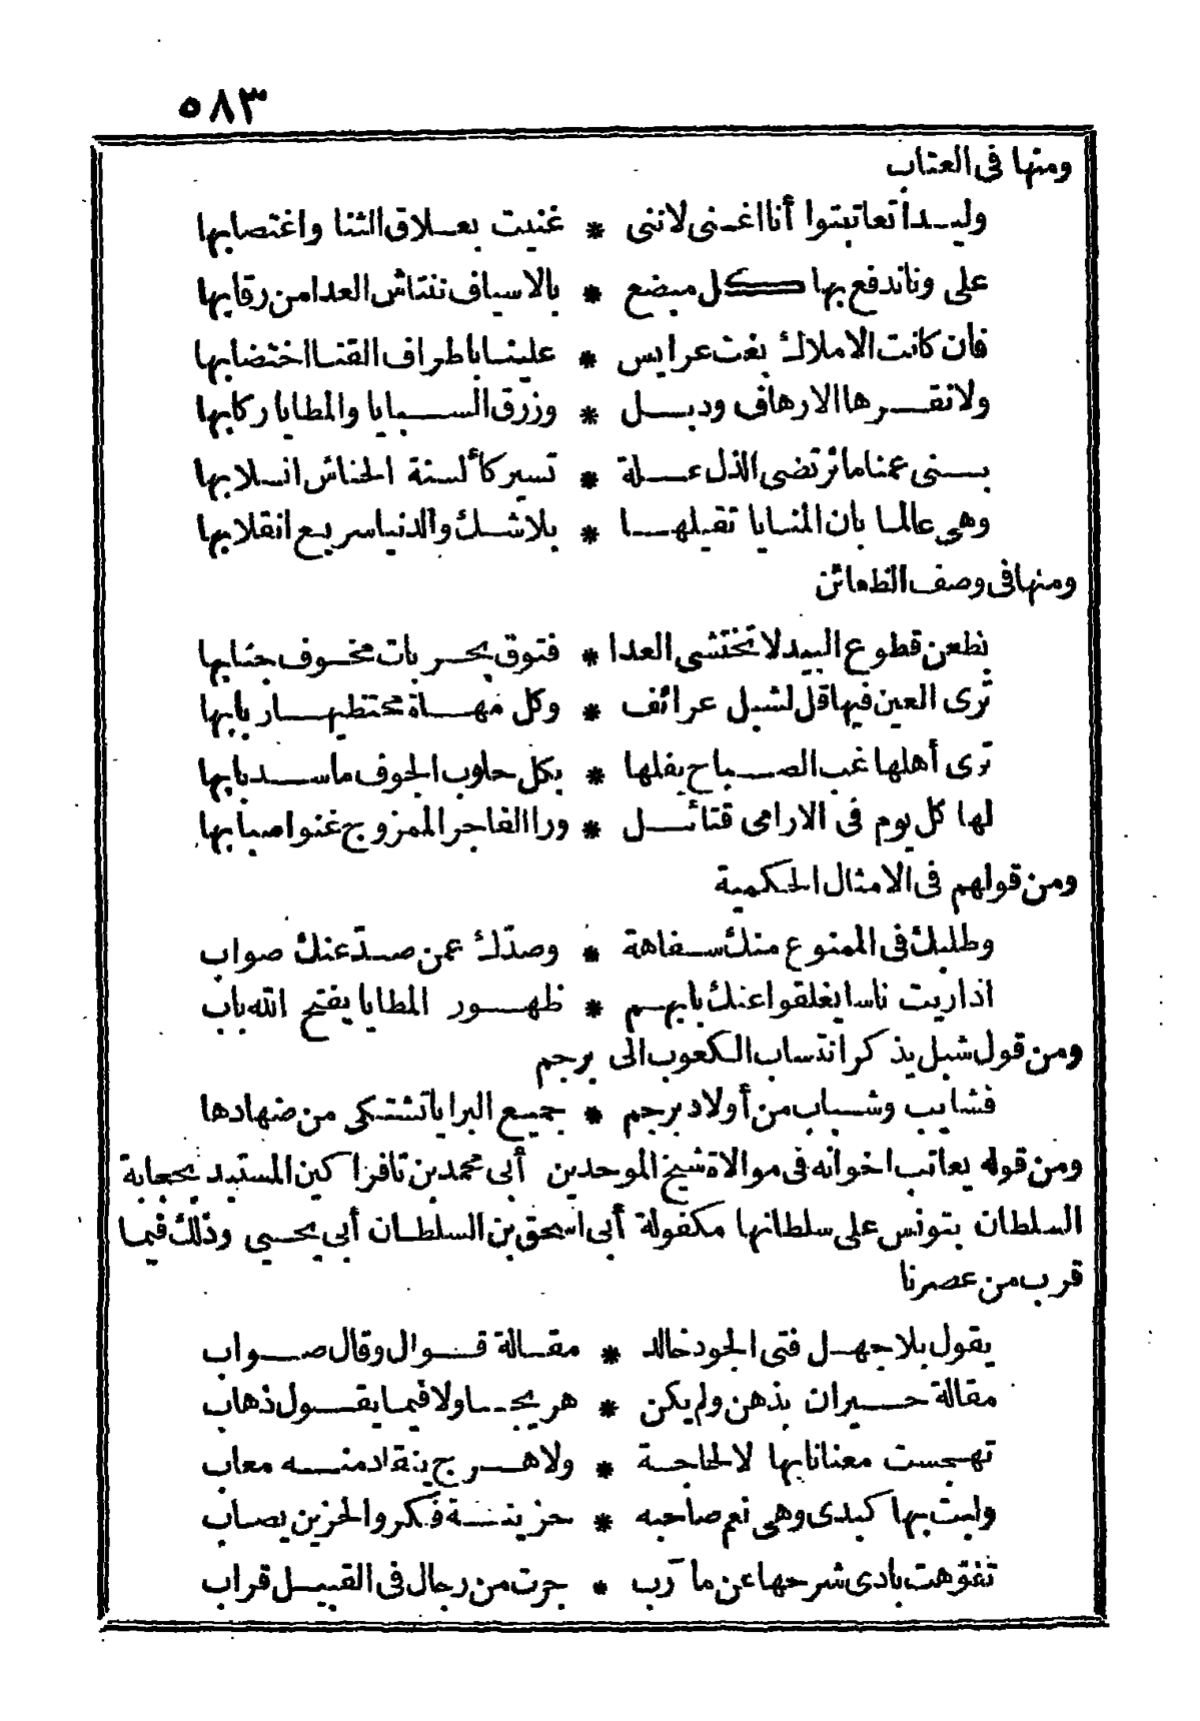 ٥٨٣
ومنها في العتاب
وليدا تعاتبتوا أنا اغنى لانني * غنيت بعلاق الثنا واغتصابها
على وناندفع بها كل مبضع * بالاسياف ننتاش العدا من رقابها
فان كانت الاملاك بغت عرايس * علينا باطراف القنا اختضابها
ولا نقرها الا رهاف ودبل * وزرق السبايا والمطايا ركابها
بنى عمنا ما نرتضى الذل علة * تسير كألسنة الحناش انسلابها
وهى عالما بان المنايا تقيلها * بلاشك والدنيا سريع انقلابها
ومنها في وصف الظعائن
بظعن قطوع البيد لا تختشى العدا * فتوق بحربات مخوف جنابها
ترى العين فيها قل لشبل عرائف * وكل مهاة محتظيها ربابها
ترى أهلها غب الصباح يفلها * بكل حلوب الجوف ما سد بابها
لها كل يوم فى الارامى قتائل * ورا الفاجر الممزوج غنوا صبابها
ومن قولهم فى الامثال الحكمية
وطلبك فى الممنوع منك سفاهة * وصدّك عمن صدّ عنك صواب
اذا ريت ناسا يغلقوا عنك بابهم * ظهور المطايا يفتح الله باب
ومن قول شبل يذكر انتساب الكعوب الى برجم
فشايب وشباب من أولاد برجم * جميع البرايا تشتكى من ضهادها
ومن قوله يعاتب اخوانه فى موالاة شيخ الموحدين أبى محمد بن تافراكين المستبد بحجابة
السلطان بتونس على سلطانها مكفولة أبى اسحق بن السلطان أبى يحيى وذلك فيما
قرب من عصرنا
يقول بلا جهل فتى الجود خالد * مقالة قوال وقال صواب
مقالة حيران بذهن ولم يكن * هريجا ولا فيما يقول ذهاب
تهجست معنانا بها لا لحاجة * ولا هرج ينقاد منه معاب
وليت بها كبدى وهى نعم صاحبه * حزينة فكر والحزين يصاب
تفوّهت بادى شرحها عن مآرب * جرت من رجال فى القبيل قراب